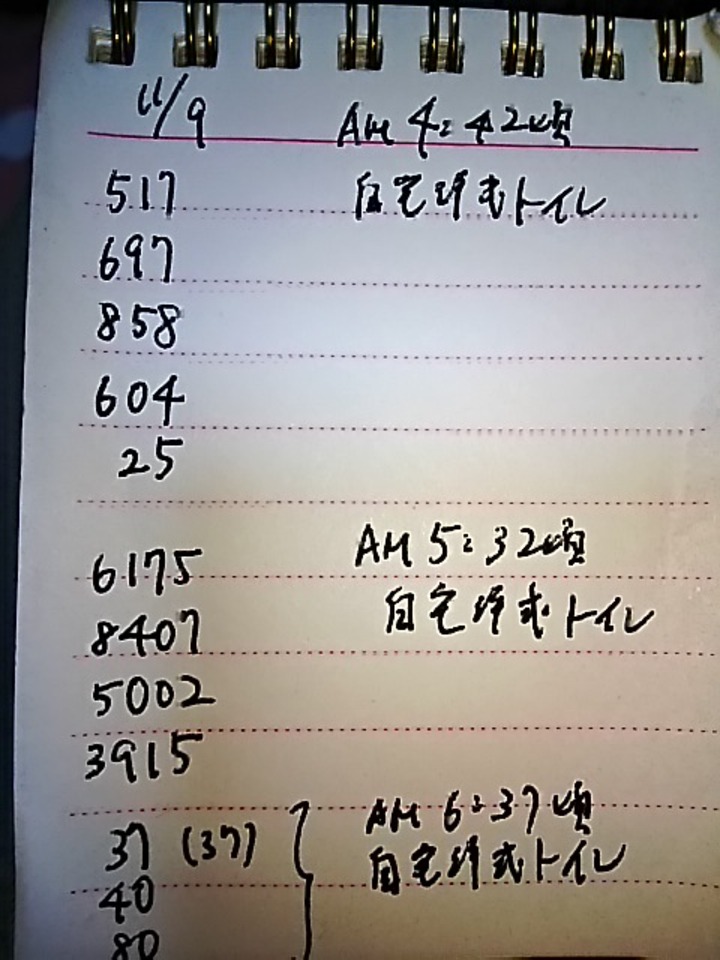 11/9 AM 4:42頃
517 自宅洋式トイレ
697
858
604
25
AM 5:32頃
6175 自宅洋式トイレ
8407
5002
3915
AM 6:37頃
37 (37) 自宅洋式トイレ
40
80